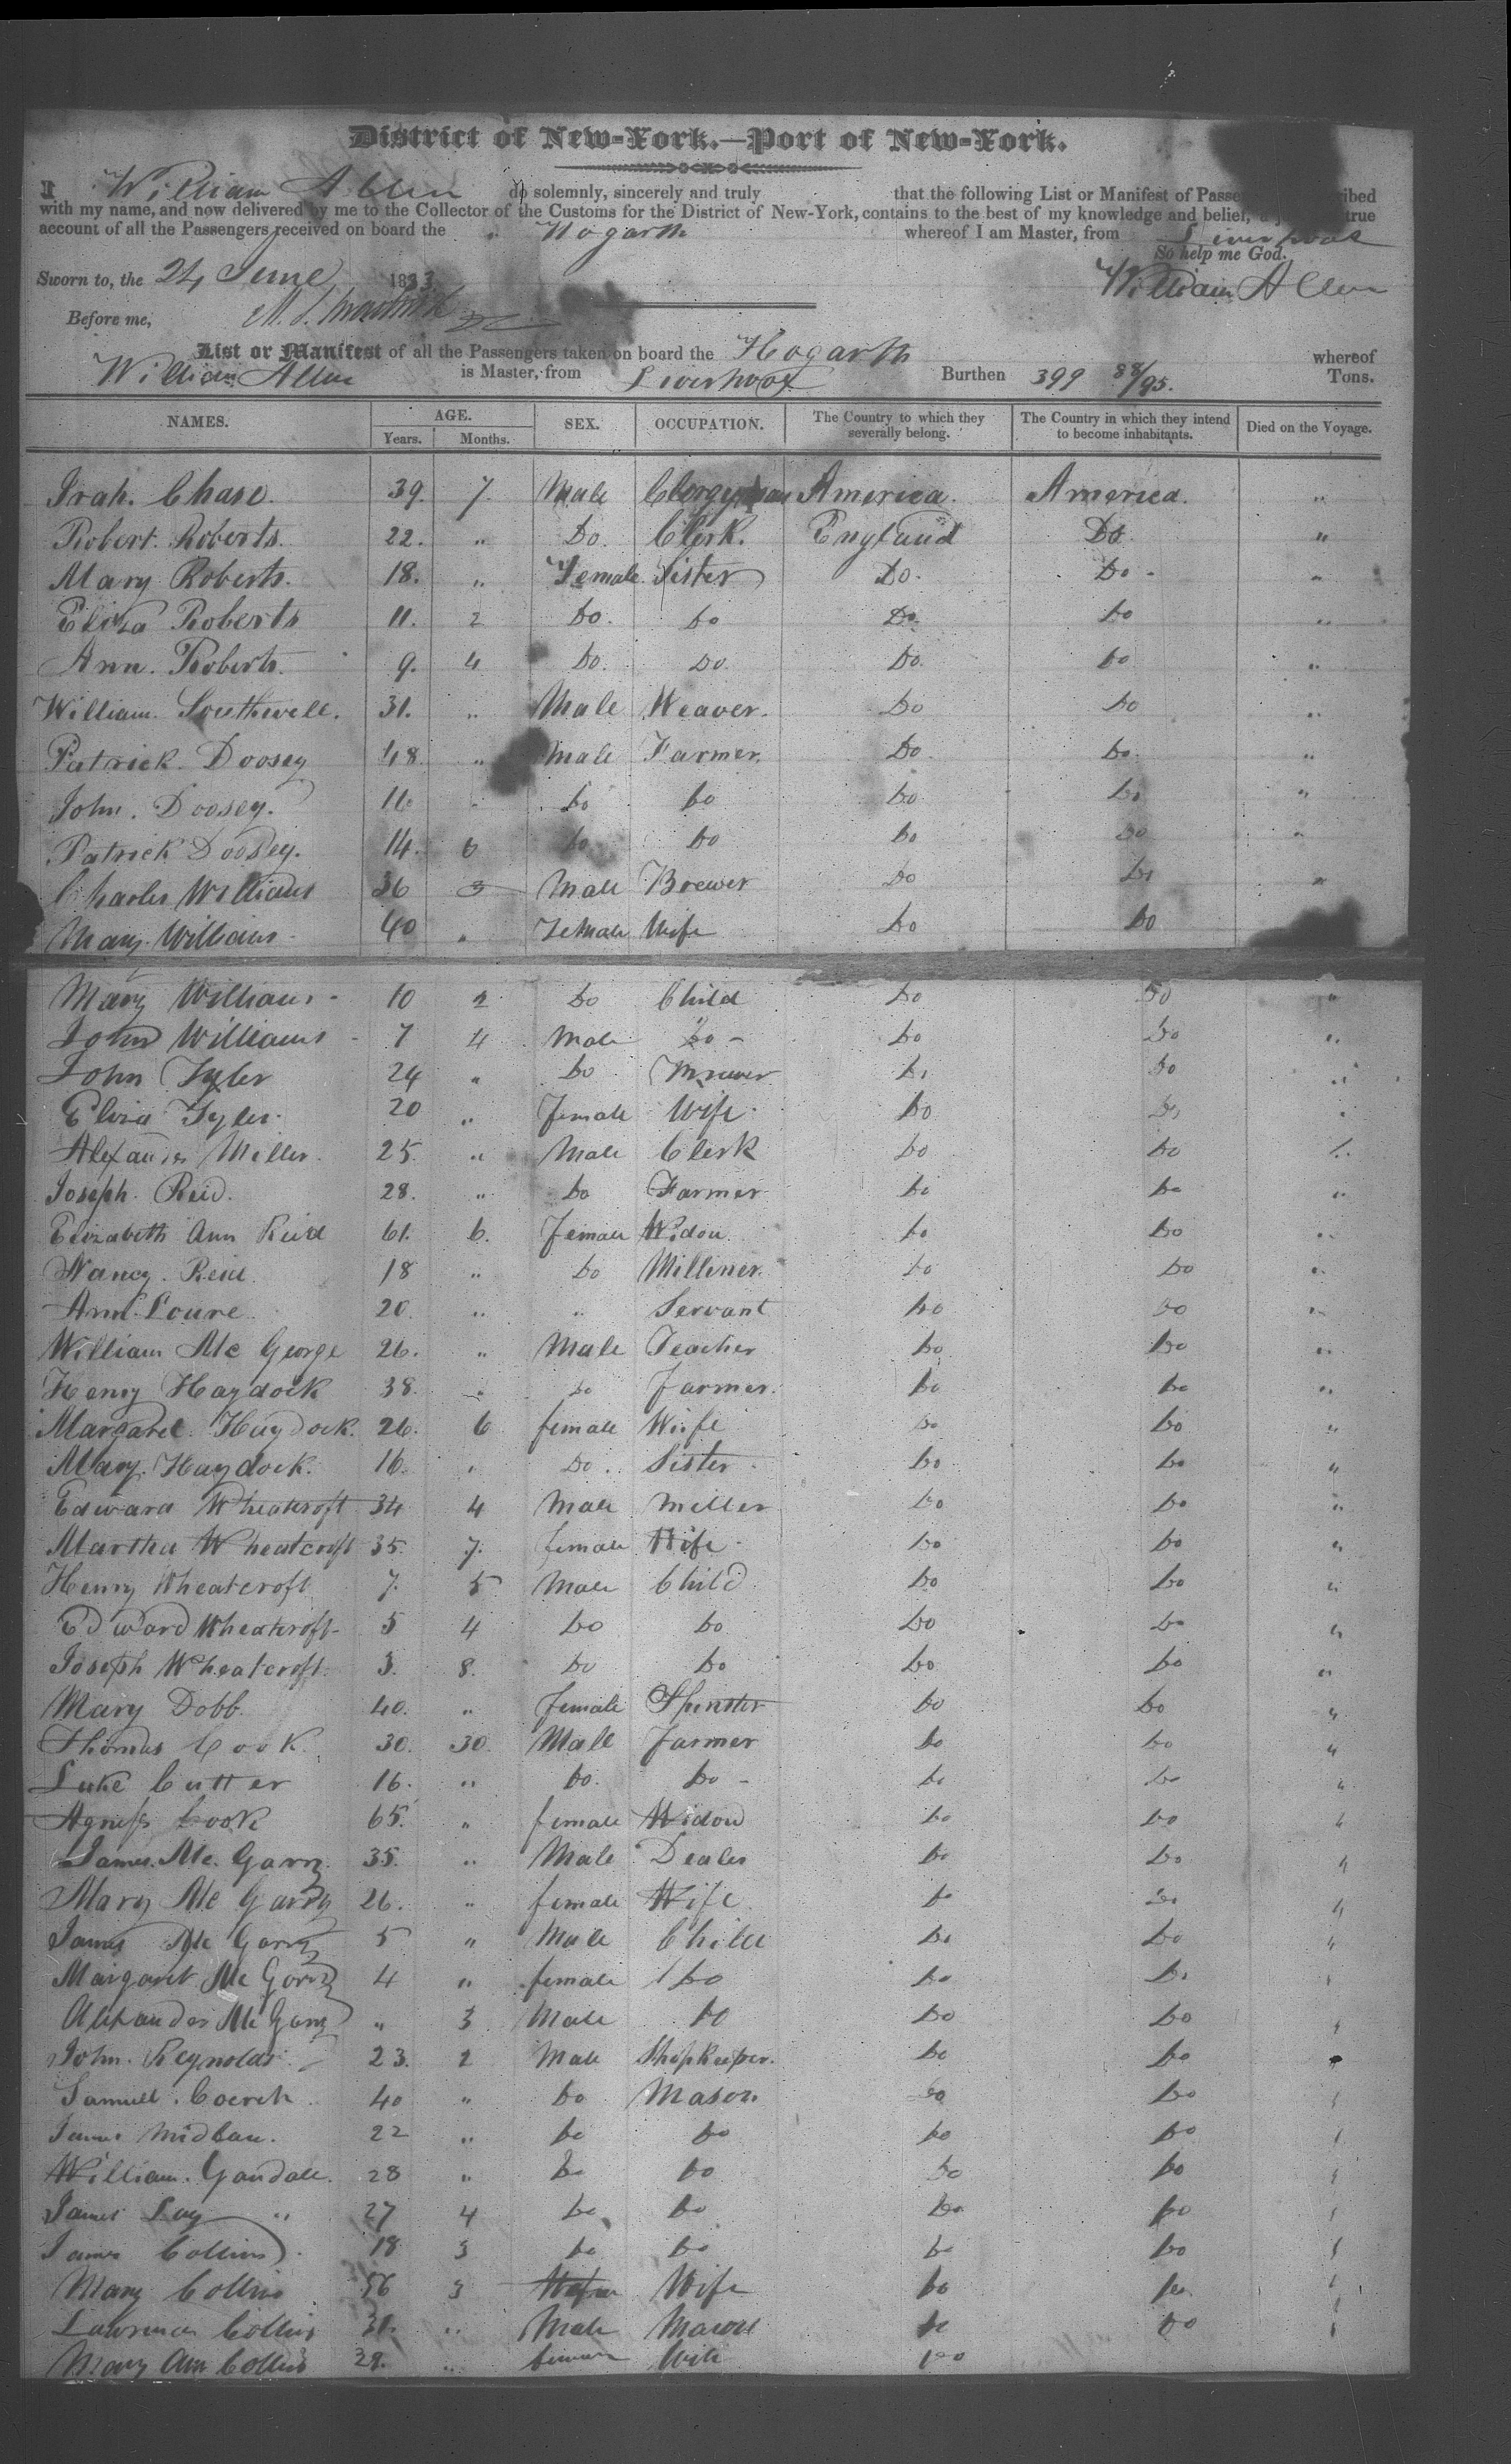 District of New-York.—Port of New-York.
I William Allen do solemnly, sincerely and truly that the following List or Manifest of
with my name, and now delivered by me to the Collector of the Customs for the District of New-York, contains to the best of my knowledge and belief, true
account of all the Passengers received on board the " Hogarth whereof I am Master, from Liverpool
So help me God.
Sworn to, the 24 June 1833. William Allen
Before me,
List or Manifest of all the Passengers taken on board the Hogarth whereof
William Allen is Master, from Liverpool Burthen 399 88/95. Tons.
NAMES. AGE. Years. Months. SEX. OCCUPATION. The Country to which they severally belong. The Country in which they intend to become inhabitants. Died on the Voyage.
Irah. Chase. 39. 7. Male Clergyman America. America. "
Robert. Roberts. 22. " Do. Clerk. England Do. "
Mary Roberts. 18. " Female Sister Do. Do. "
Eliza Roberts 11. 2 Do. Do Do. Do "
Ann. Roberts. 9. 4 Do. Do. Do. Do "
William. Southwell. 31. " Male Weaver. Do Do "
Patrick. Doosey 48. " Male Farmer. Do. Do. "
John. Doosey. " Do Do Do Do "
Patrick Doosey. 14. 6 Do Do Do Do "
Charles Williams 36 3 Male Brewer Do Do "
Mary Williams 40 " Female Wife Do Do
Mary Williams 10 2 Do Child Do Do "
John Williams 7 4 Male Do Do Do "
John Tyler 24 " Do Do Do "
Eliza Tyler 20 " Female Wife Do Do "
Alexander Miller. 25. " Male Clerk Do Do "
Joseph. Reid. 28. " Do Farmer Do Do "
Elizabeth Ann Reid 61. 6. Female Widow Do Do "
Nancy. Reid. 18 " Do Milliner. Do Do "
Ann. 20. " " Servant Do Do "
William Mc George 26. " Male Teacher Do Do "
Henry Haydock 38. " Do Farmer. Do Do "
Margaret. Haydock. 26. 6 female Wife Do Do "
Mary. Haydock. 16. " Do. Sister Do Do "
Edward Wheatcroft 34 4 Male Miller Do Do "
Martha Wheatcroft 35. 7. female Wife Do Do "
Henry Wheatcroft 7. 5 Male Child Do Do "
Edward Wheatcroft 5 4 Do Do Do Do "
Joseph Wheatcroft 3. 8. Do Do Do Do "
Mary Dobb. 40. " female Spinster Do Do "
Thomas Cook 30. 30. Male Farmer Do Do "
Luke Cutter 16. " Do. Do Do Do "
Agness Cook 65. " female Widow Do Do "
James. Mc. Garry. 35. " Male Dealer Do Do "
Mary Mc Garry 26. " female Wife. Do Do "
James Mc Garry 5 " Male Child Do Do "
Margaret Mc Garry 4 " female Do Do Do "
Alexander Mc Garry " 3 Male Do Do Do "
John. Reynolds. 23. 2 Male Shopkeeper. Do Do
Samuel. 40 " Do Mason Do Do "
James 22 " Do Do Do Do "
William. 28 " Do Do Do Do "
James " 27 4 Do Do Do Do "
James Collins 18 3 Do Do Do Do "
Mary Collins 56 3 Wife Do Do "
Lawrence Collins " Male Do Do "
Mary Ann Collins " female Wife Do